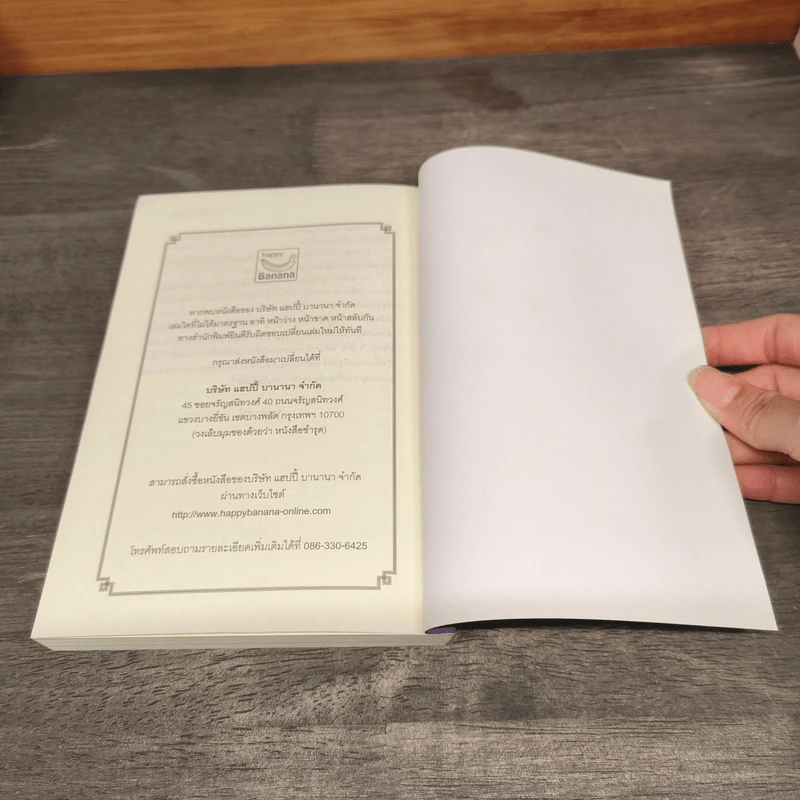 happy
Banana
หากพบหนังสือของ บริษัท แฮปปี้ บานานา จำกัด
เล่มใดที่ไม่ได้มาตรฐาน อาทิ หน้าว่าง หน้าขาด หน้าสลับกัน
ทางสำนักพิมพ์ยินดีรับผิดชอบเปลี่ยนเล่มใหม่ให้ทันที
กรุณาส่งหนังสือมาเปลี่ยนได้ที่
บริษัท แฮปปี้ บานานา จำกัด
45 ซอยจรัญสนิทวงศ์ 40 ถนนจรัญสนิทวงศ์
แขวงบางยี่ขัน เขตบางพลัด กรุงเทพฯ 10700
(วงเล็บมุมซองด้วยว่า หนังสือชำรุด)
สามารถสั่งซื้อหนังสือของบริษัท แฮปปี้ บานานา จำกัด
ผ่านทางเว็บไซต์
http://www.happybanana-online.com
โทรศัพท์สอบถามรายละเอียดเพิ่มเติมได้ที่ 086-330-6425